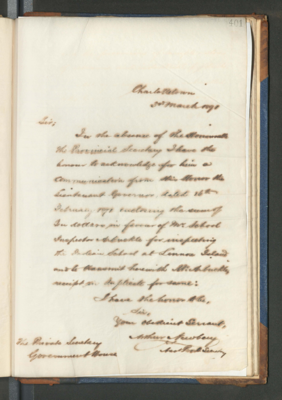 401
Charlottetown
3rd March 1891
Sir,
In the absence of the Honorable
the Provincial Secretary I have the
honour to acknowledge for him a
communication from His Honor the
Lieutenant Governor dated 16th
February 1891 enclosing the sum of
Ten dollars in favour of Mr. School
Inspector Arbuckle for inspecting
the Indian School at Lennox Island
and to transmit herewith Mr. Arbuckle's
receipt in duplicate for same.
I have the honor to be,
Sir,
Your obedient Servant,
Arthur Newbery
Asst Prov Secy
The Private Secretary
Government House